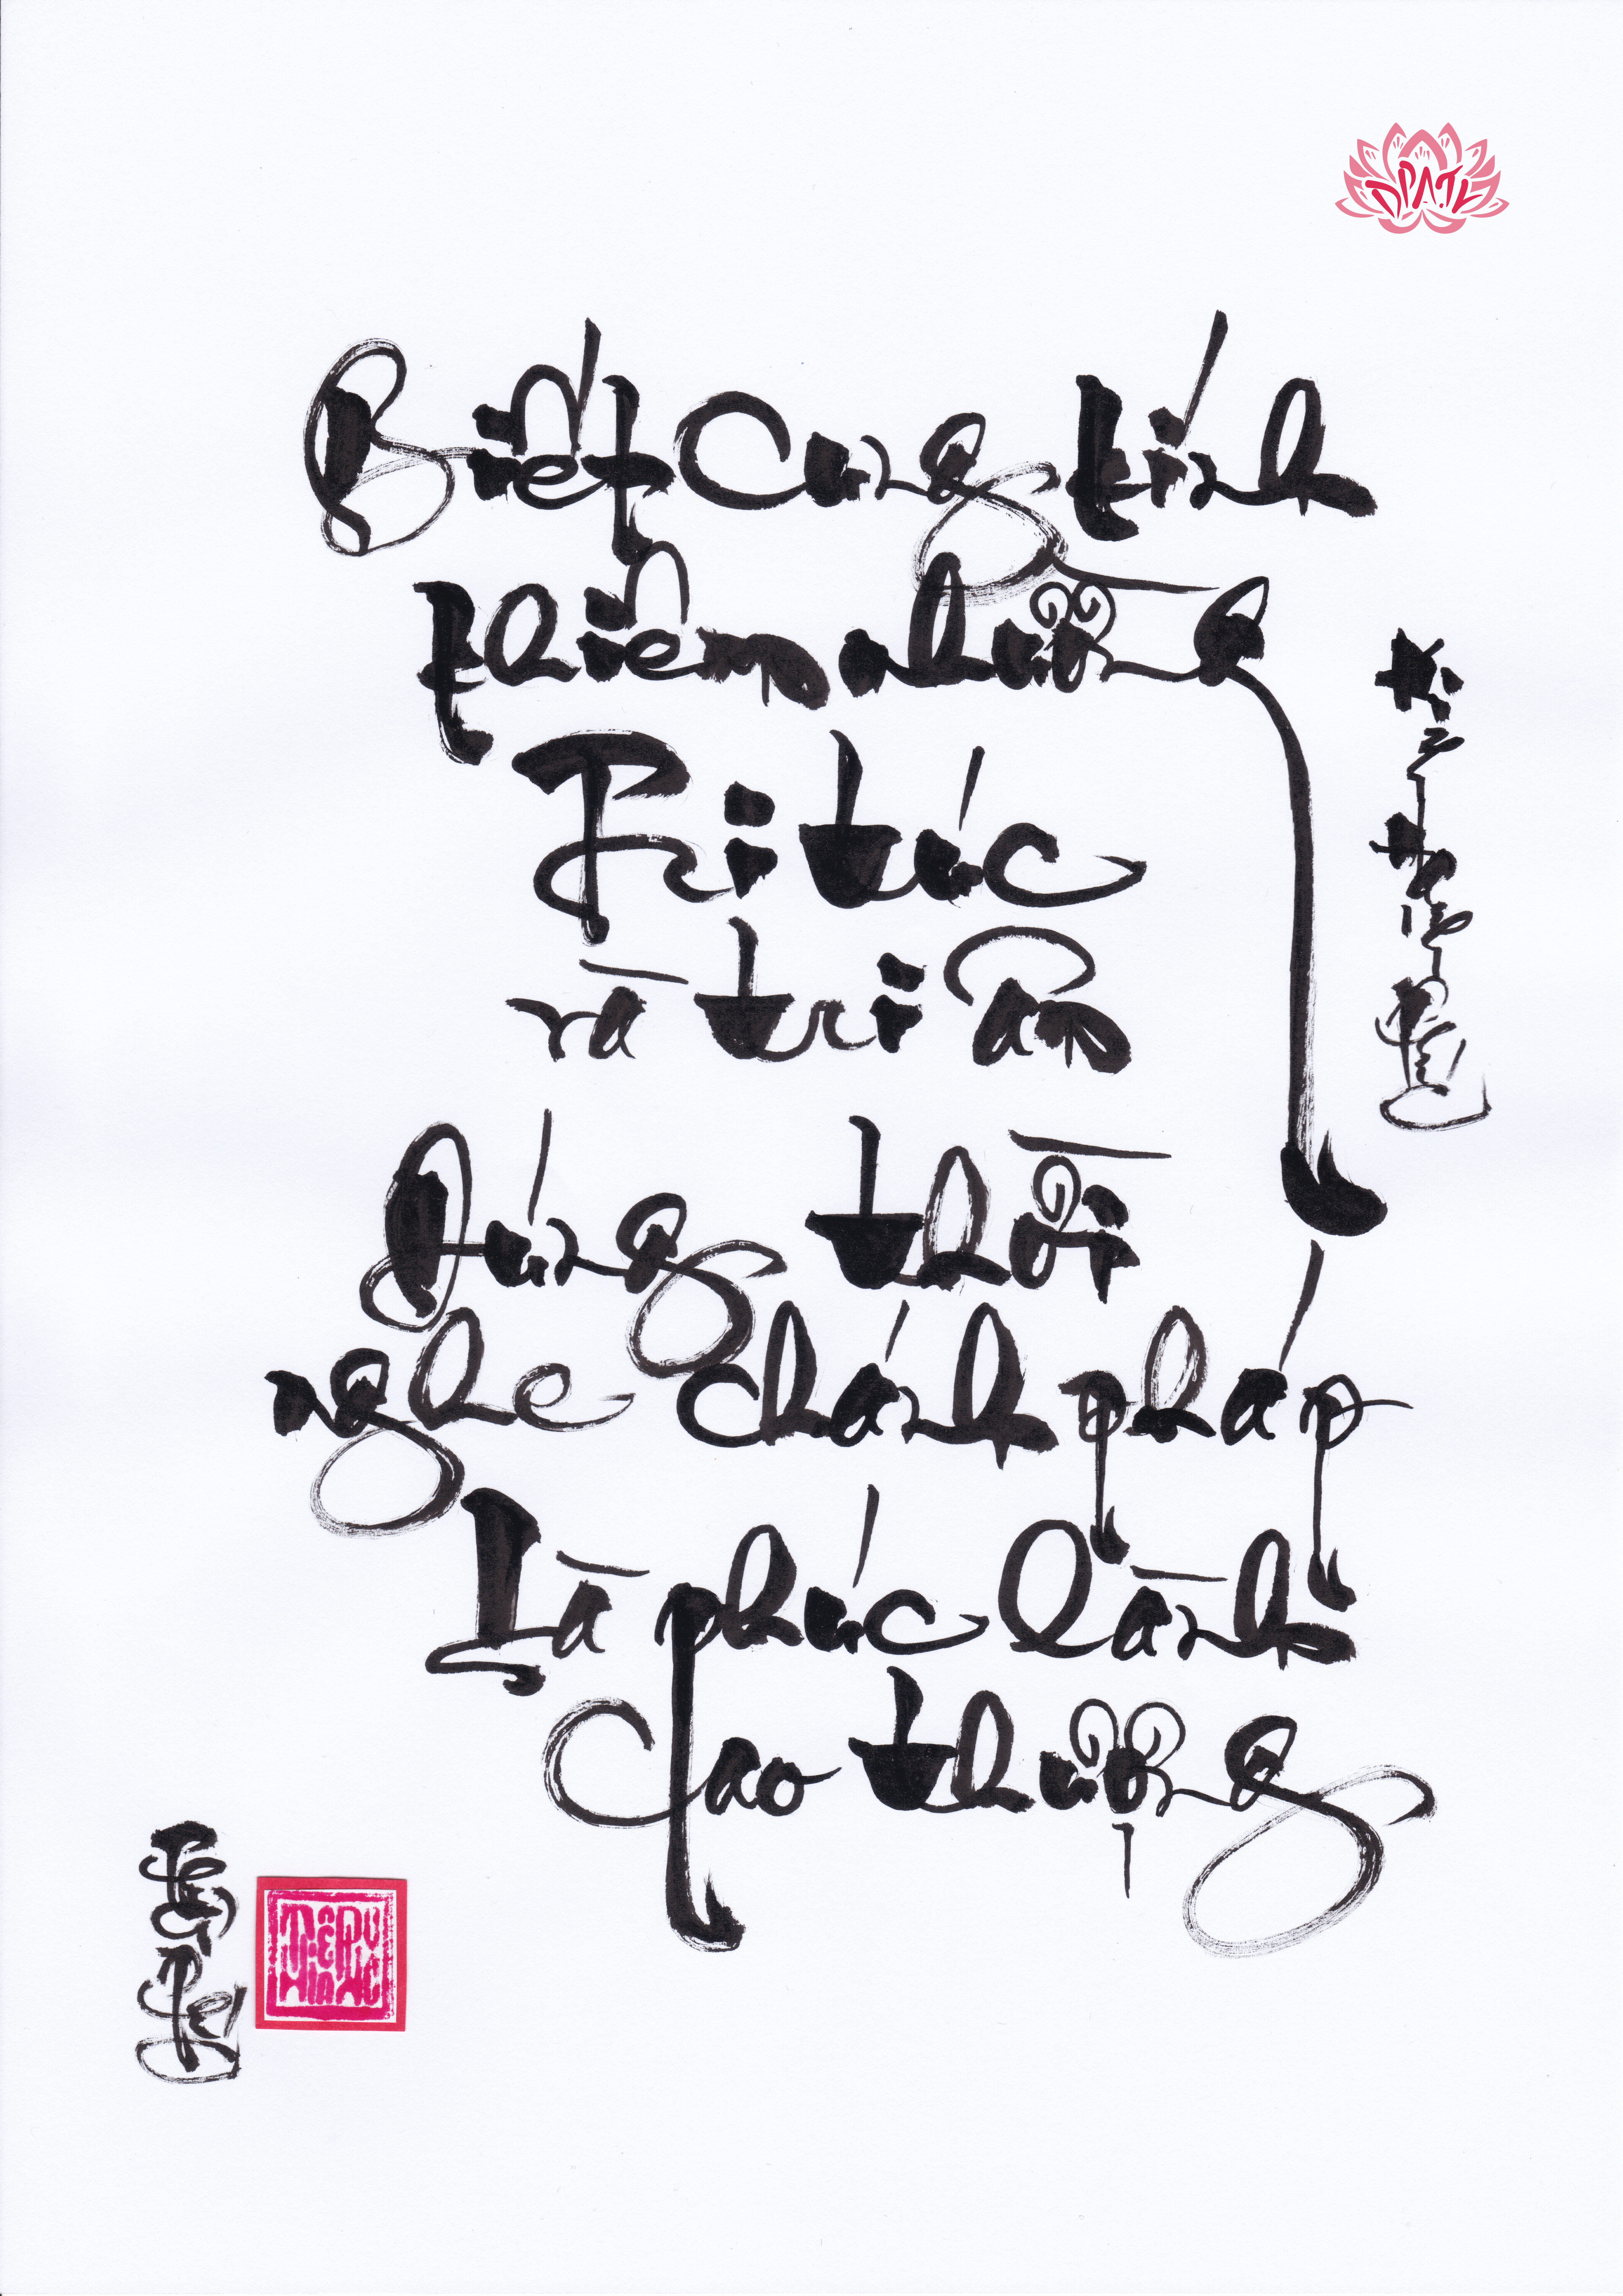 Biết Cung kính
khiêm nhường
Tri túc
và tri ân
Đúng thời
nghe chánh pháp
Là phúc lành
Cao thượng